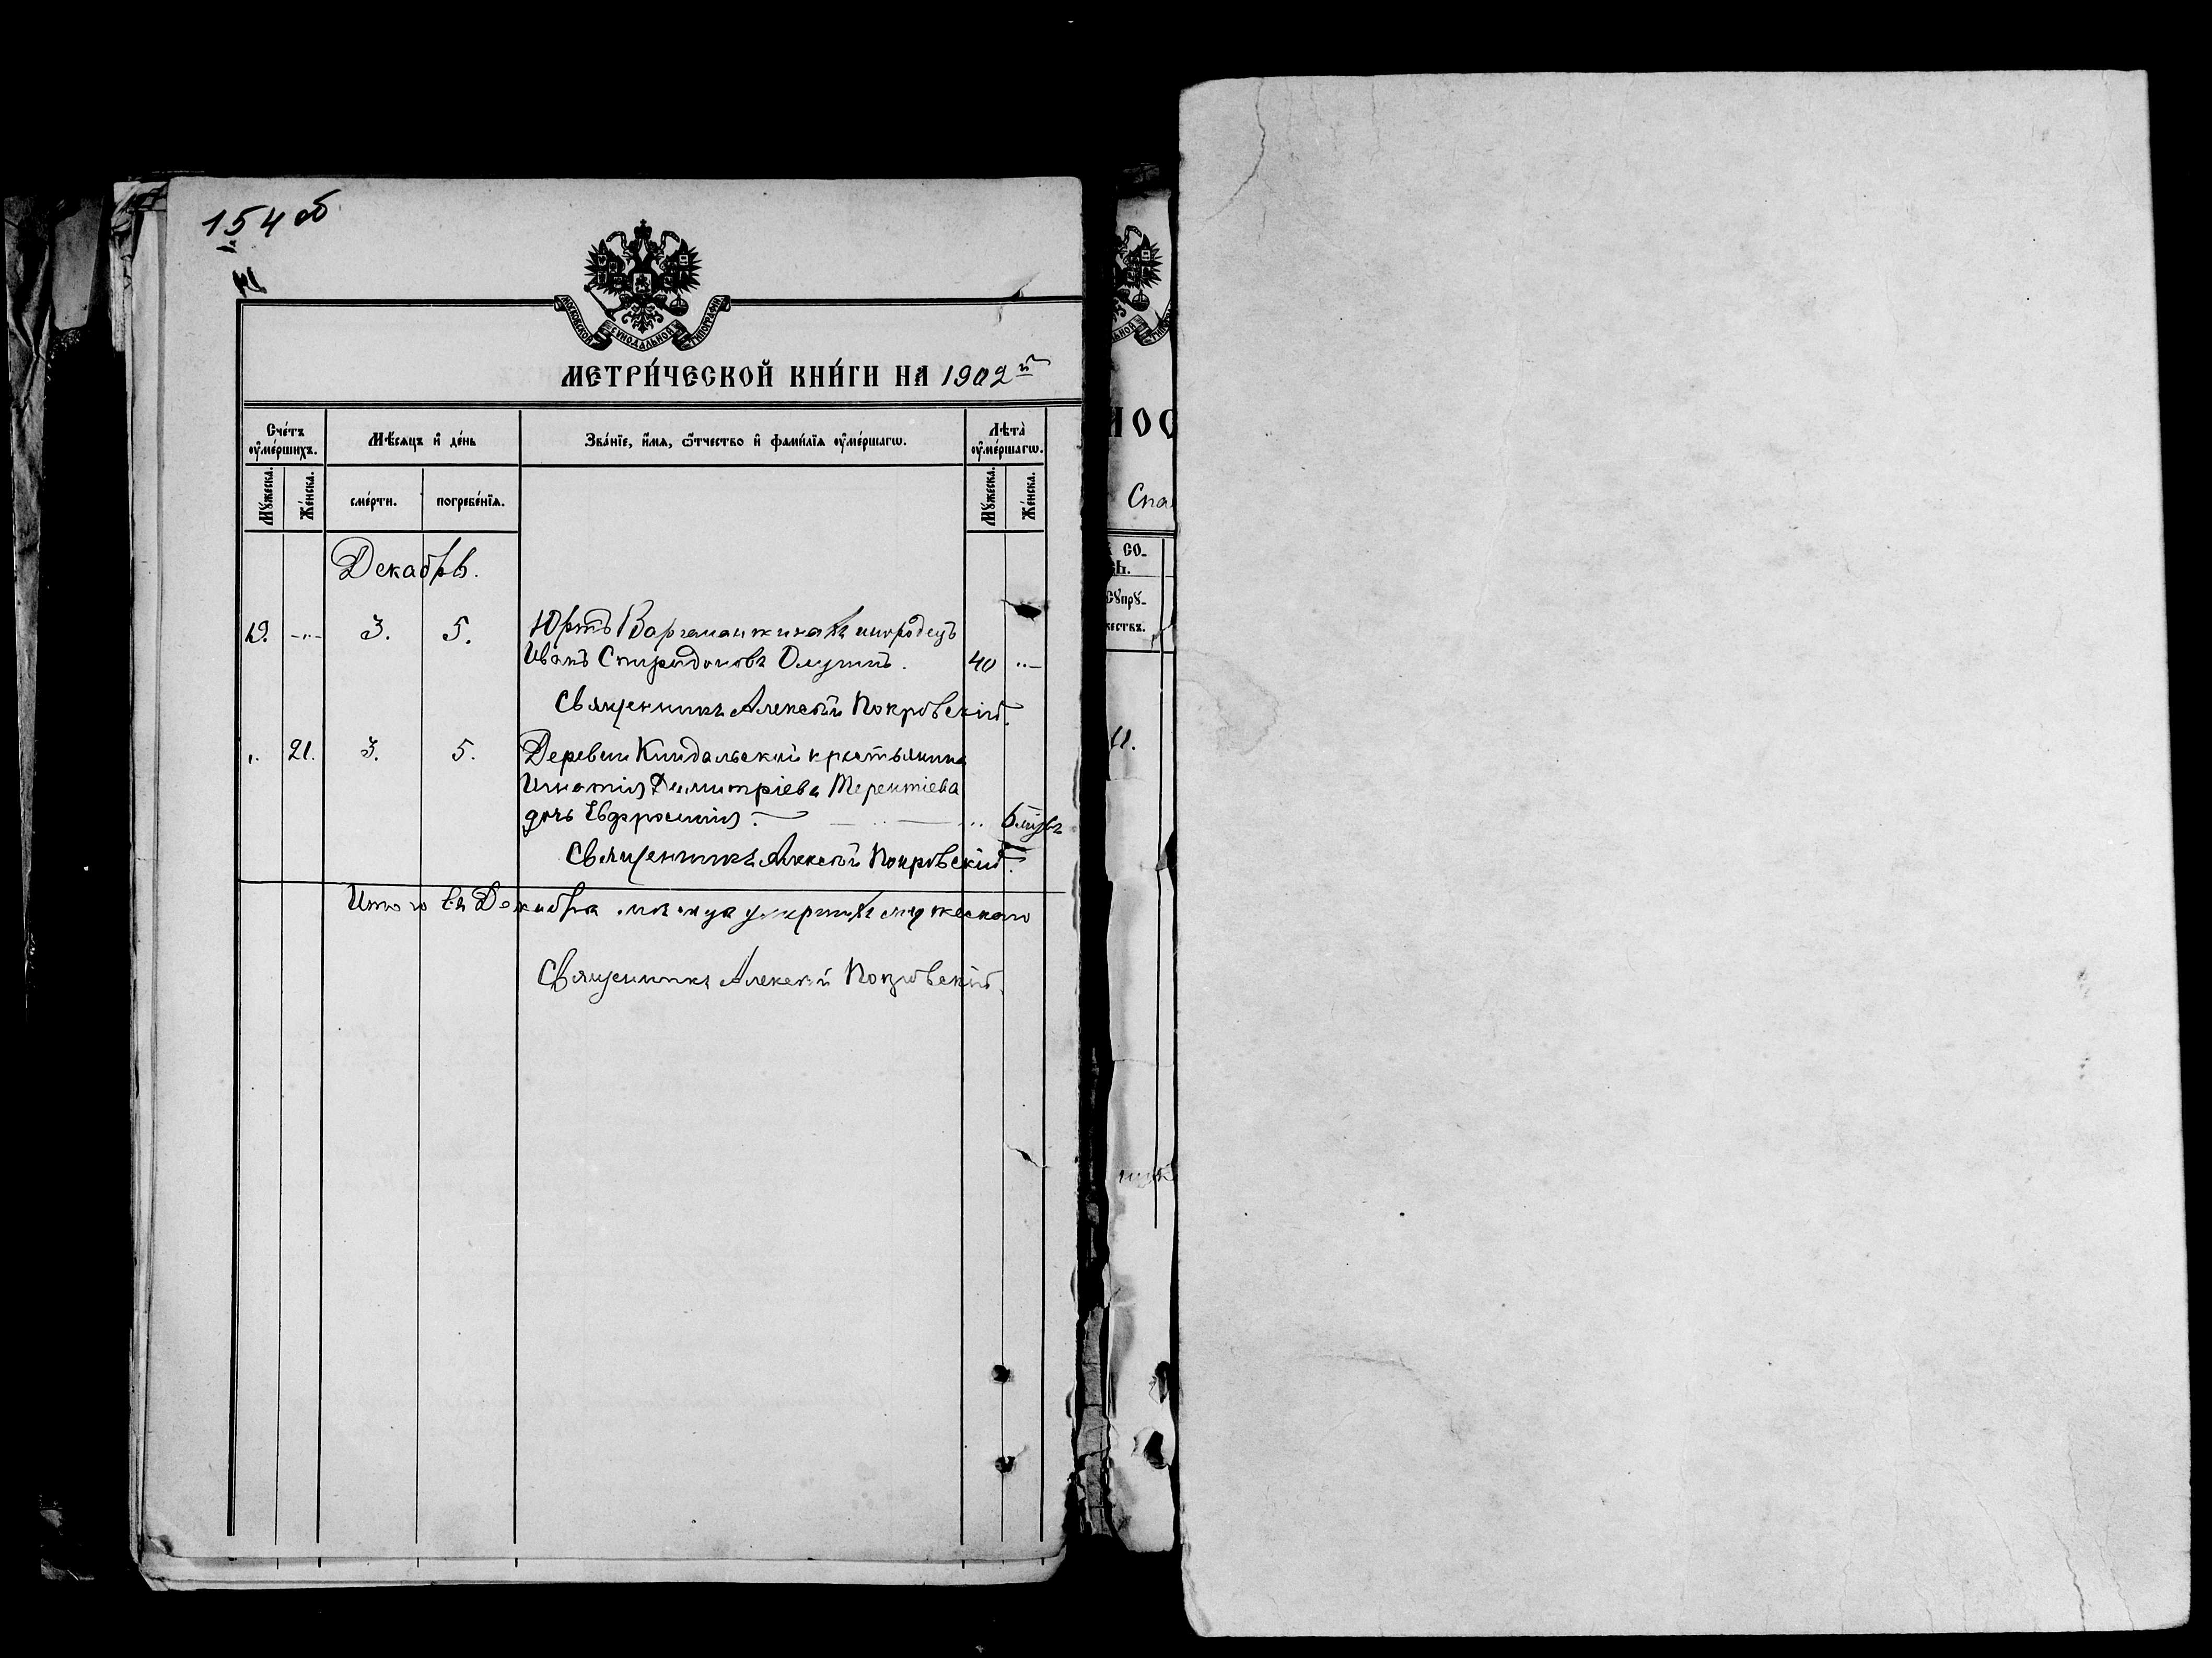 154 об
МОСКОВСКОЙ СѴНОДАЛЬНОЙ ТИПОГРАФІИ
МЕТРИ́ЧЕСКОЙ КНИ́ГИ НА 1902й
Сче́тъ ᲂу҆ме́ршихъ.
Мѣ́сяцъ и҆ де́нь
Зва́нїе, и҆́мя, ѻ҆́тчество и҆ фами́лїя ᲂу҆ме́ршагѡ.
Лѣта̀ ᲂу҆ме́ршагѡ.
Мꙋ́жеска.
Же́нска.
сме́рти.
погребе́нїя.
Мꙋ́жеска.
Же́нска.
Декабрь.
19. -"- 3. 5. Юртъ Варгананжиныхъ инородецъ
Иванъ Спиридоновъ 40 "-
Священникъ Алексѣй Покровскій.
". 21. 3. 5. Деревни Киндальской крестьянина
Игнатія Димитріева Терентіева
дочь Евфросинія. "
Священникъ Алексѣй Покровскій.
Итого въ Декабрѣ мѣсяцѣ умершихъ мужескаго
Священникъ Алексѣй Покровскій.
НОС
Спа
СО-
СꙋПРꙋ-
11.